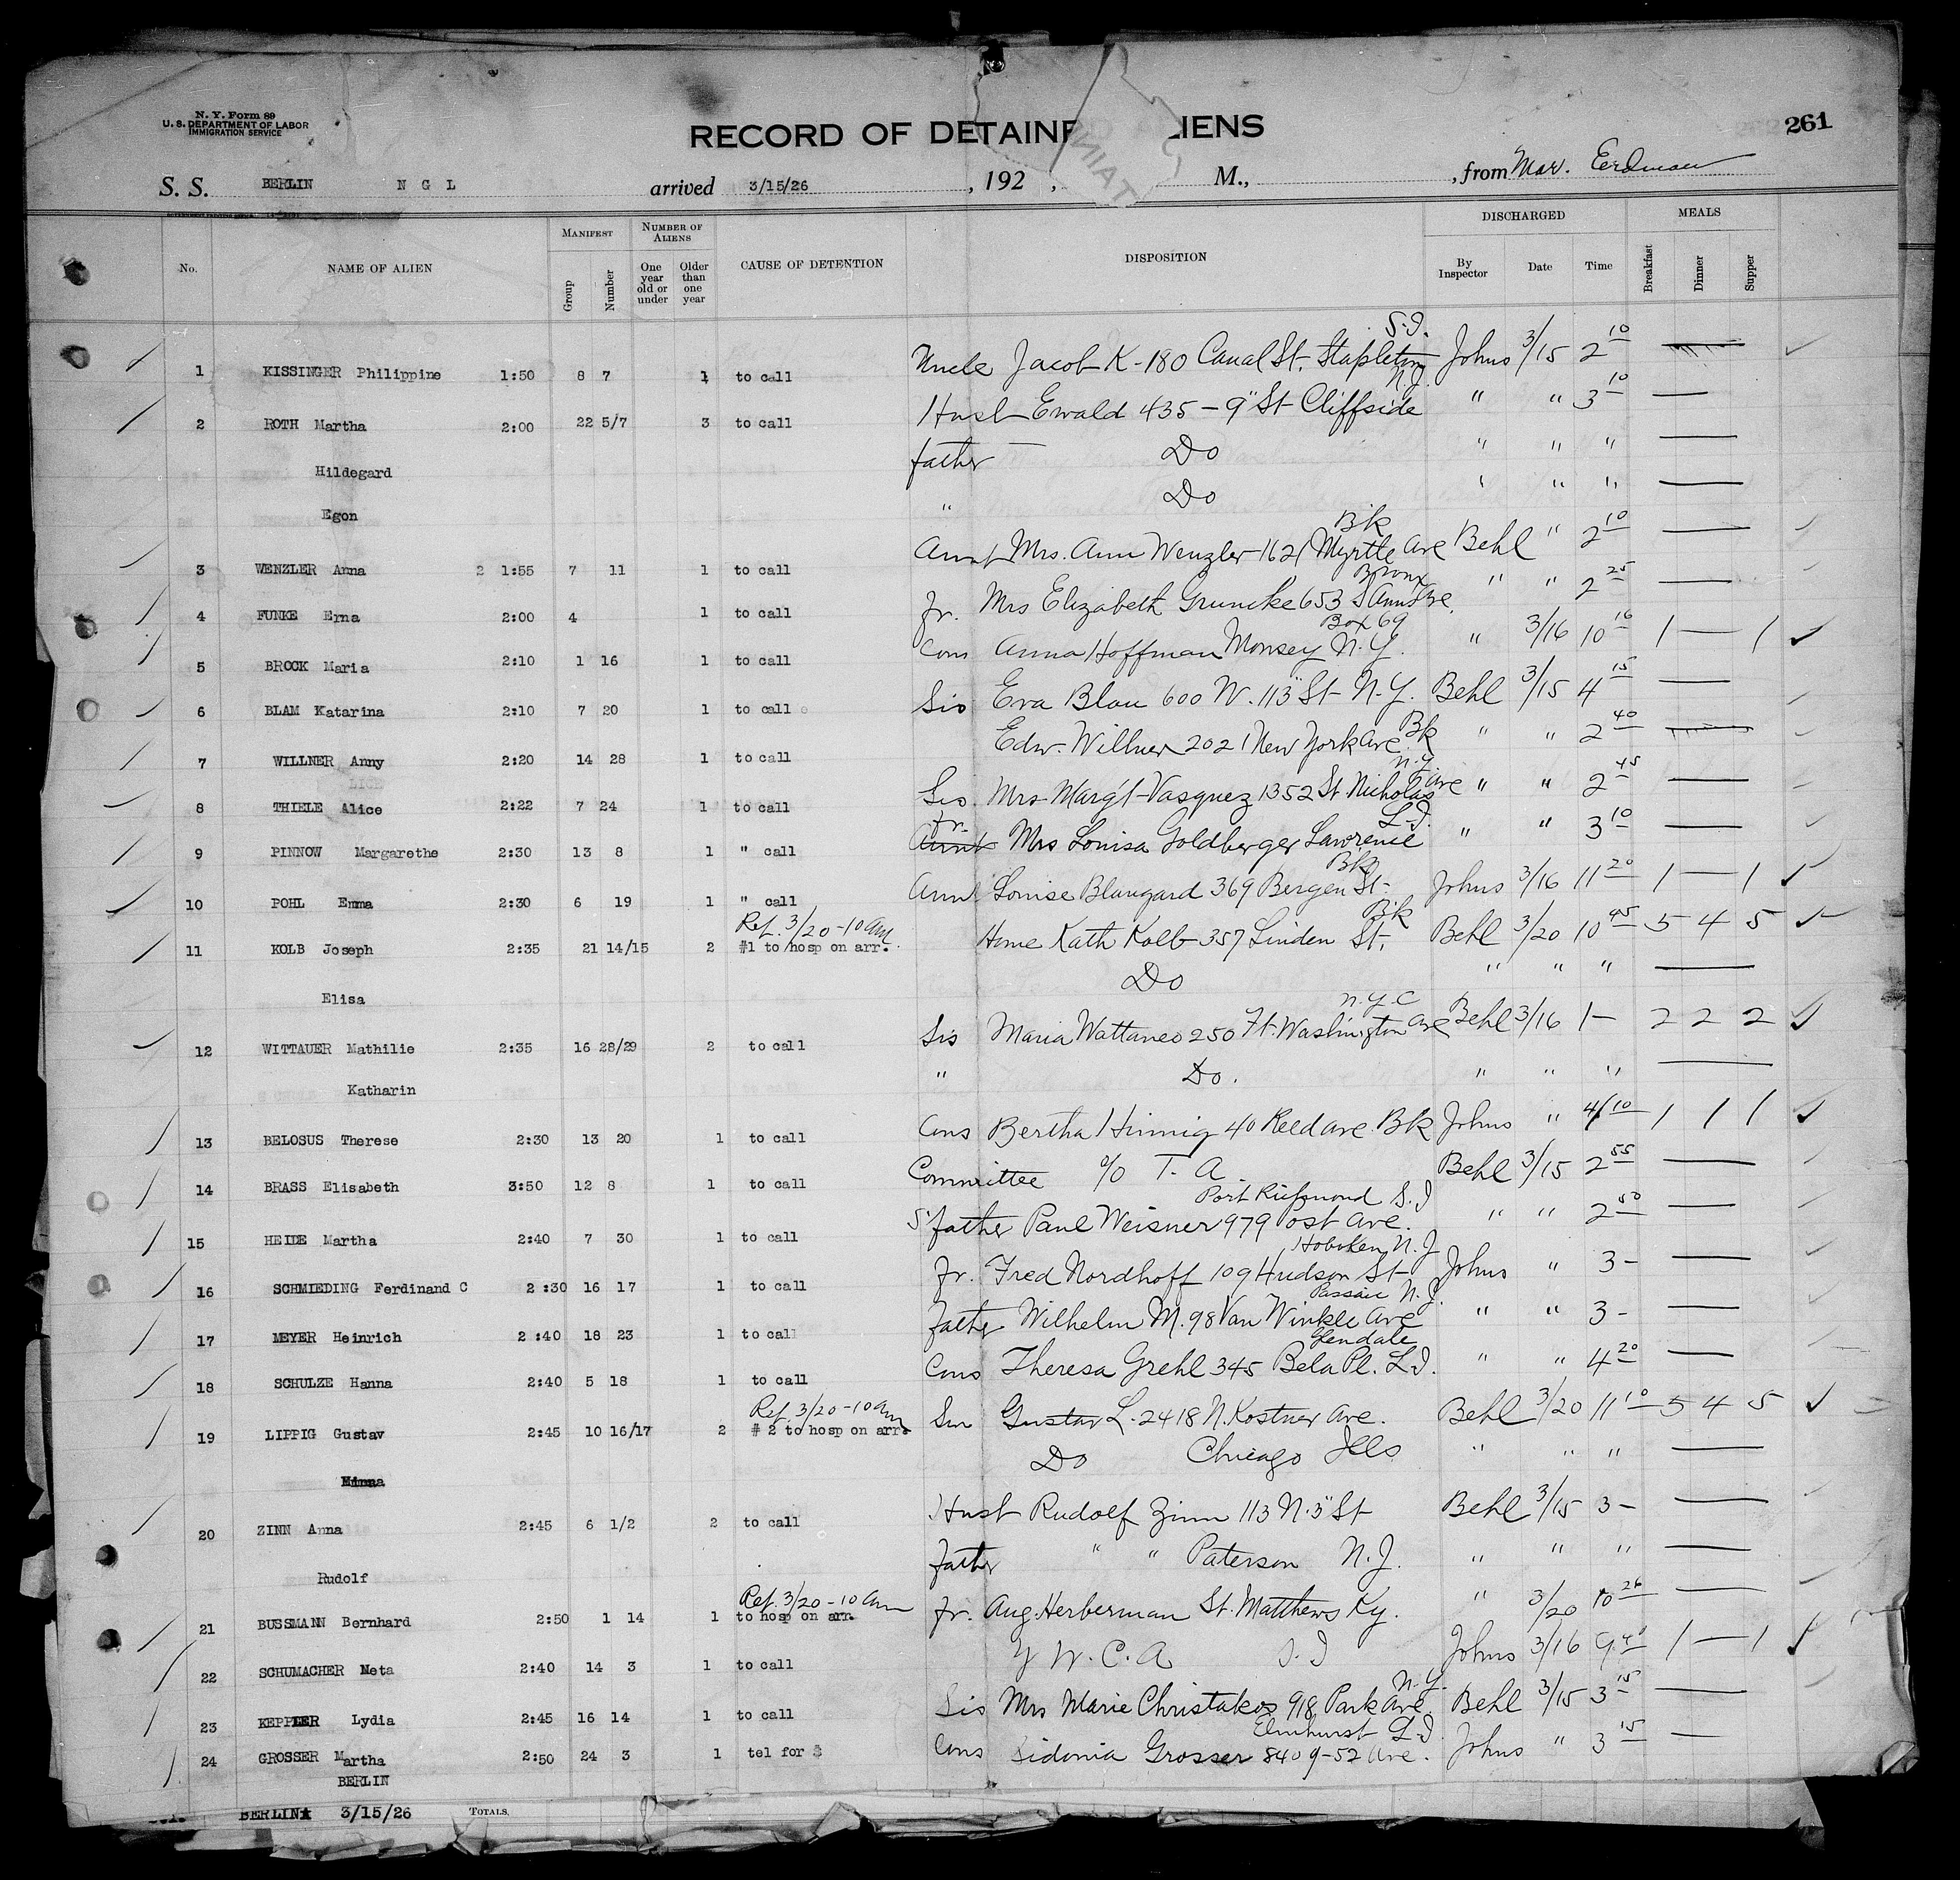 N. Y. Form 89
U. S. DEPARTMENT OF LABOR
IMMIGRATION SERVICE
RECORD OF DETAINE LIENS
261
S. S. BERLIN N G L arrived 3/15/26, 192 , M., , from Mar. Eerdman
No. NAME OF ALIEN MANIFEST Group Number NUMBER OF ALIENS One year old or under Older than one year CAUSE OF DETENTION DISPOSITION DISCHARGED By Inspector Date Time MEALS Breakfast Dinner Supper
1 KISSINGER Philippine 1:50 8 7 1 to call Uncle Jacob K - 180 Canal St. Stapleton S.I. Johns 3/15 2 10
2 ROTH Martha 2:00 22 5/7 3 to call Husb Ewald 435 - 9" St Cliffside N.J. " " 3 10
Hildegard father Do " " "
Egon " Do " " "
3 WENZLER Anna 2 1:55 7 11 1 to call Aunt Mrs. Ann Wenzler 1621 Myrtle Ave Bk Behl " 2 10
4 FUNKE Erna 2:00 4 1 to call fr. Mrs Elizabeth Gruncke 653 S Anns Ave. Bronx " " 2 25
5 BROCK Maria 2:10 1 16 1 to call Cous Anna Hoffman Monsey N.Y. Box 69 " 3/16 10 16 1 — 1
6 BLAM Katarina 2:10 7 20 1 to call Sis Eva Blau 600 W. 113" St N.Y. Behl 3/15 4 15
7 WILLNER Anny 2:20 14 28 1 to call Edw. Willner 2021 New York Ave. Bk " " 2 40
8 THIELE Alice 2:22 7 24 1 to call Sis. Mrs Margt Vasquez 1352 St Nicholas Ave N.Y. " " 2 45
9 PINNOW Margarethe 2:30 13 8 1 " call Aunt fr. Mrs Louisa Goldberger Lawrence L.I. " " 3 10
10 POHL Emma 2:30 6 19 1 " call Aunt Louise Blangard 369 Bergen St. Bk Johns 3/16 11 20 1 — 1
11 KOLB Joseph 2:35 21 14/15 2 Ref. 3/20 - 10 am #1 to hosp on arr. Home Kath Kolb - 357 Linden St. Bk Behl 3/20 10 45 5 4 5
Elisa Do " " "
12 WITTAUER Mathilie 2:35 16 28/29 2 to call Sis Maria Wattaneo 250 Ft. Washington Ave N.Y.C Behl 3/16 1 — 2 2 2
Katharin " Do. " " "
13 BELOSUS Therese 2:30 13 20 1 to call Cous Bertha Hinnig 40 Reed Ave. Bk Johns " 4 10 1 1 1
14 BRASS Elisabeth 3:50 12 8 1 to call Committee c/o T. A Behl 3/15 2 55
15 HEIDE Martha 2:40 7 30 1 to call S'father Paul Weisner 979 Post Ave. Port Richmond S.I " " 2 50
16 SCHMIEDING Ferdinand C 2 :30 16 17 1 to call fr. Fred Nordhoff 109 Hudson St Hoboken N.J Johns " 3 -
17 MEYER Heinrich 2 :40 18 23 1 to call father Wilhelm M. 98 Van Winkle Ave Passaic N.J. " " 3 -
18 SCHULZE Hanna 2:40 5 18 1 to call Cous Theresa Grehl 345 Bela Pl. L.I. Glendale " " 4 20
19 LIPPIG Gustav 2:45 10 16/17 2 Ref. 3/20 - 10 am # 2 to hosp on arr. Son Gustav L. 2418 N. Kostner Ave. Behl 3/20 11 10 5 4 5
Minna Do Chicago Ills " " "
20 ZINN Anna 2:45 6 1/2 2 to call Husb Rudolf Zinn 113 N. 3" St Behl 3/15 3 -
Rudolf father " " Paterson N.J. " " "
21 BUSSMANN Bernhard 2:50 1 14 1 Ref. 3/20 - 10 am to hosp on arr. fr. Aug. Herberman St. Matthews Ky. " 3/20 10 26
22 SCHUMACHER Meta 2:40 14 3 1 to call Y W. C. A Johns 3/16 9 1 — 1
23 KEPPLER Lydia 2:45 16 14 1 to call Sis Mrs Marie Christakos 918 Park Ave. N.Y. Behl 3/15 3 15
24 GROSSER Martha 2:50 24 3 1 tel for $ Cous Sidonia Grosser 8409 - 52 Ave. Elmhurst L.I. Johns " 3 15
BERLIN
BERLIN 3/15/26 TOTALS,